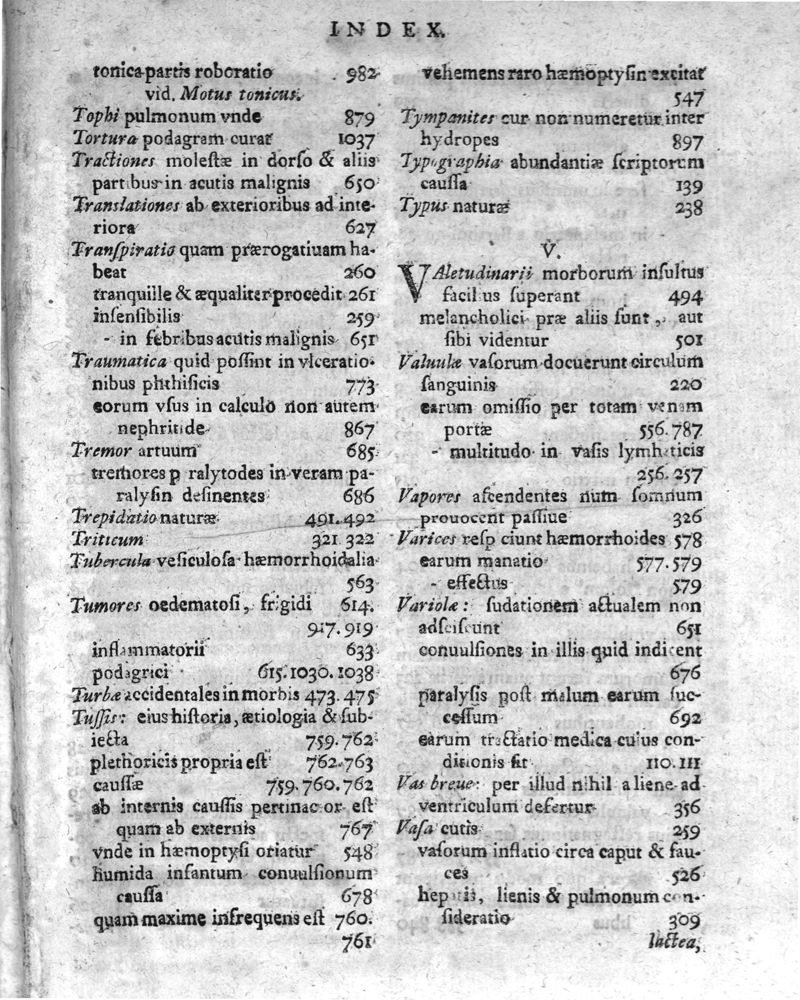 INDEX.
tonica partis roboratio 982
vid. Motus tonicus.
Tophi pulmonum vnde 879
Tortura podagram curat 1037
Tractiones molestæ in dorso & aliis
partibus in acutis malignis 650
Translationes ab exterioribus ad inte-
riora 627
Tranſpiratio quam prærogatiuam ha-
beat 260
tranquille & æqualiter procedit 261
inſenſibilis 259
- in febribus acutis malignis 651
Traumatica quid poſſint in vlceratio-
nibus phthiſicis 773
eorum vſus in calculo non autem
nephritide 867
Tremor artuum 685
tremores p ralytodes in veram pa-
ralyſin deſinentes 686
Trepidatio naturæ 491.492
Triticum 321.322
Tubercula veſiculoſa hæmorrhoidalia
563
Tumores oedematoſi, frigidi 614.
917.919
inflammatorii 633
podagrici 615.1030.1038
Turbæ accidentales in morbis 473.475
Tuſſis: eius hiſtoria, ætiologia & ſub-
iecta 759.762
plethoricis propria eſt 762.763
cauſſæ 759.760.762
ab internis cauſſis pertinac or eſt
quam ab externis 767
vnde in hæmoptyſi oriatur 548
humida infantum conuulſionum
cauſſa 678
quam maxime infrequens eſt 760.
761
vehemens raro hæmoptyſin excitat
547
Tympanites cur non numeretur inter
hydropes 897
Typographia abundantiæ ſcriptorum
cauſſa 139
Typus naturæ 238
V.
VAletudinarii morborum inſultus
facilius ſuperant 494
melancholici præ aliis ſunt, aut
ſibi videntur 501
Valuulæ vaſorum docuerunt circulum
ſanguinis 220
earum omiſſio per totam venam
portæ 556.787
- multitudo in vaſis lymphaticis
256.257
Vapores aſcendentes num ſomnum
prouocent paſſiue 326
Varices reſp ciunt hæmorrhoides 578
earum manatio 577.579
- effectus 579
Variolæ: ſudationem actualem non
adſciſcunt 651
conuulſiones in illis quid indicent
676
paralyſis poſt malum earum ſuc-
ceſſum 692
earum tractatio medica cuius con-
ditionis ſit 110.111
Vas breue: per illud nihil aliene ad
ventriculum defertur 356
Vaſa cutis 259
vaſorum inflatio circa caput & fau-
ces 526
hepatis, lienis & pulmonum con-
ſideratio 309
lactea,